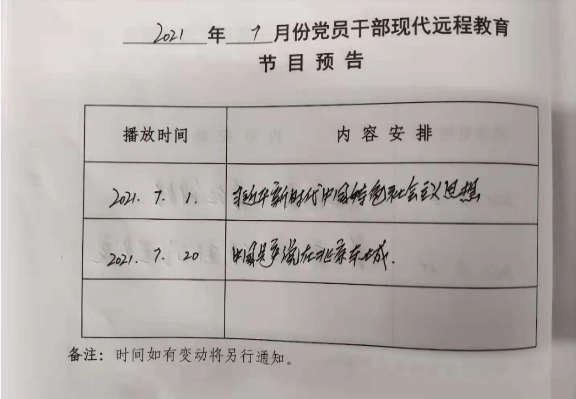 2021 年 7 月份党员干部现代远程教育
节目预告
播放时间 内容安排
2021.7.1. 习近平新时代中国特色社会主义思想
2021.7.20 中国共产党在北京东城.
备注：时间如有变动将另行通知。